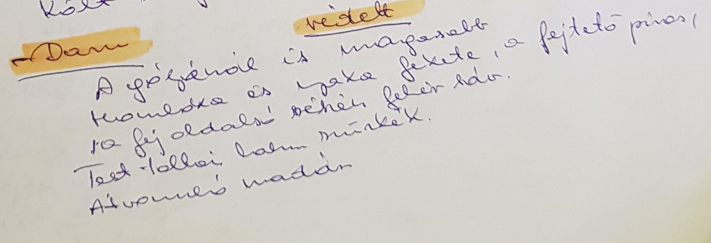 Költ
- Daru védett
A gólyánál is magasabb
Homloka és nyaka fekete, a fejtető piros,
a fej oldalsó részén fehér sáv.
Test tollai hamu szürkék.
Átvonuló madár